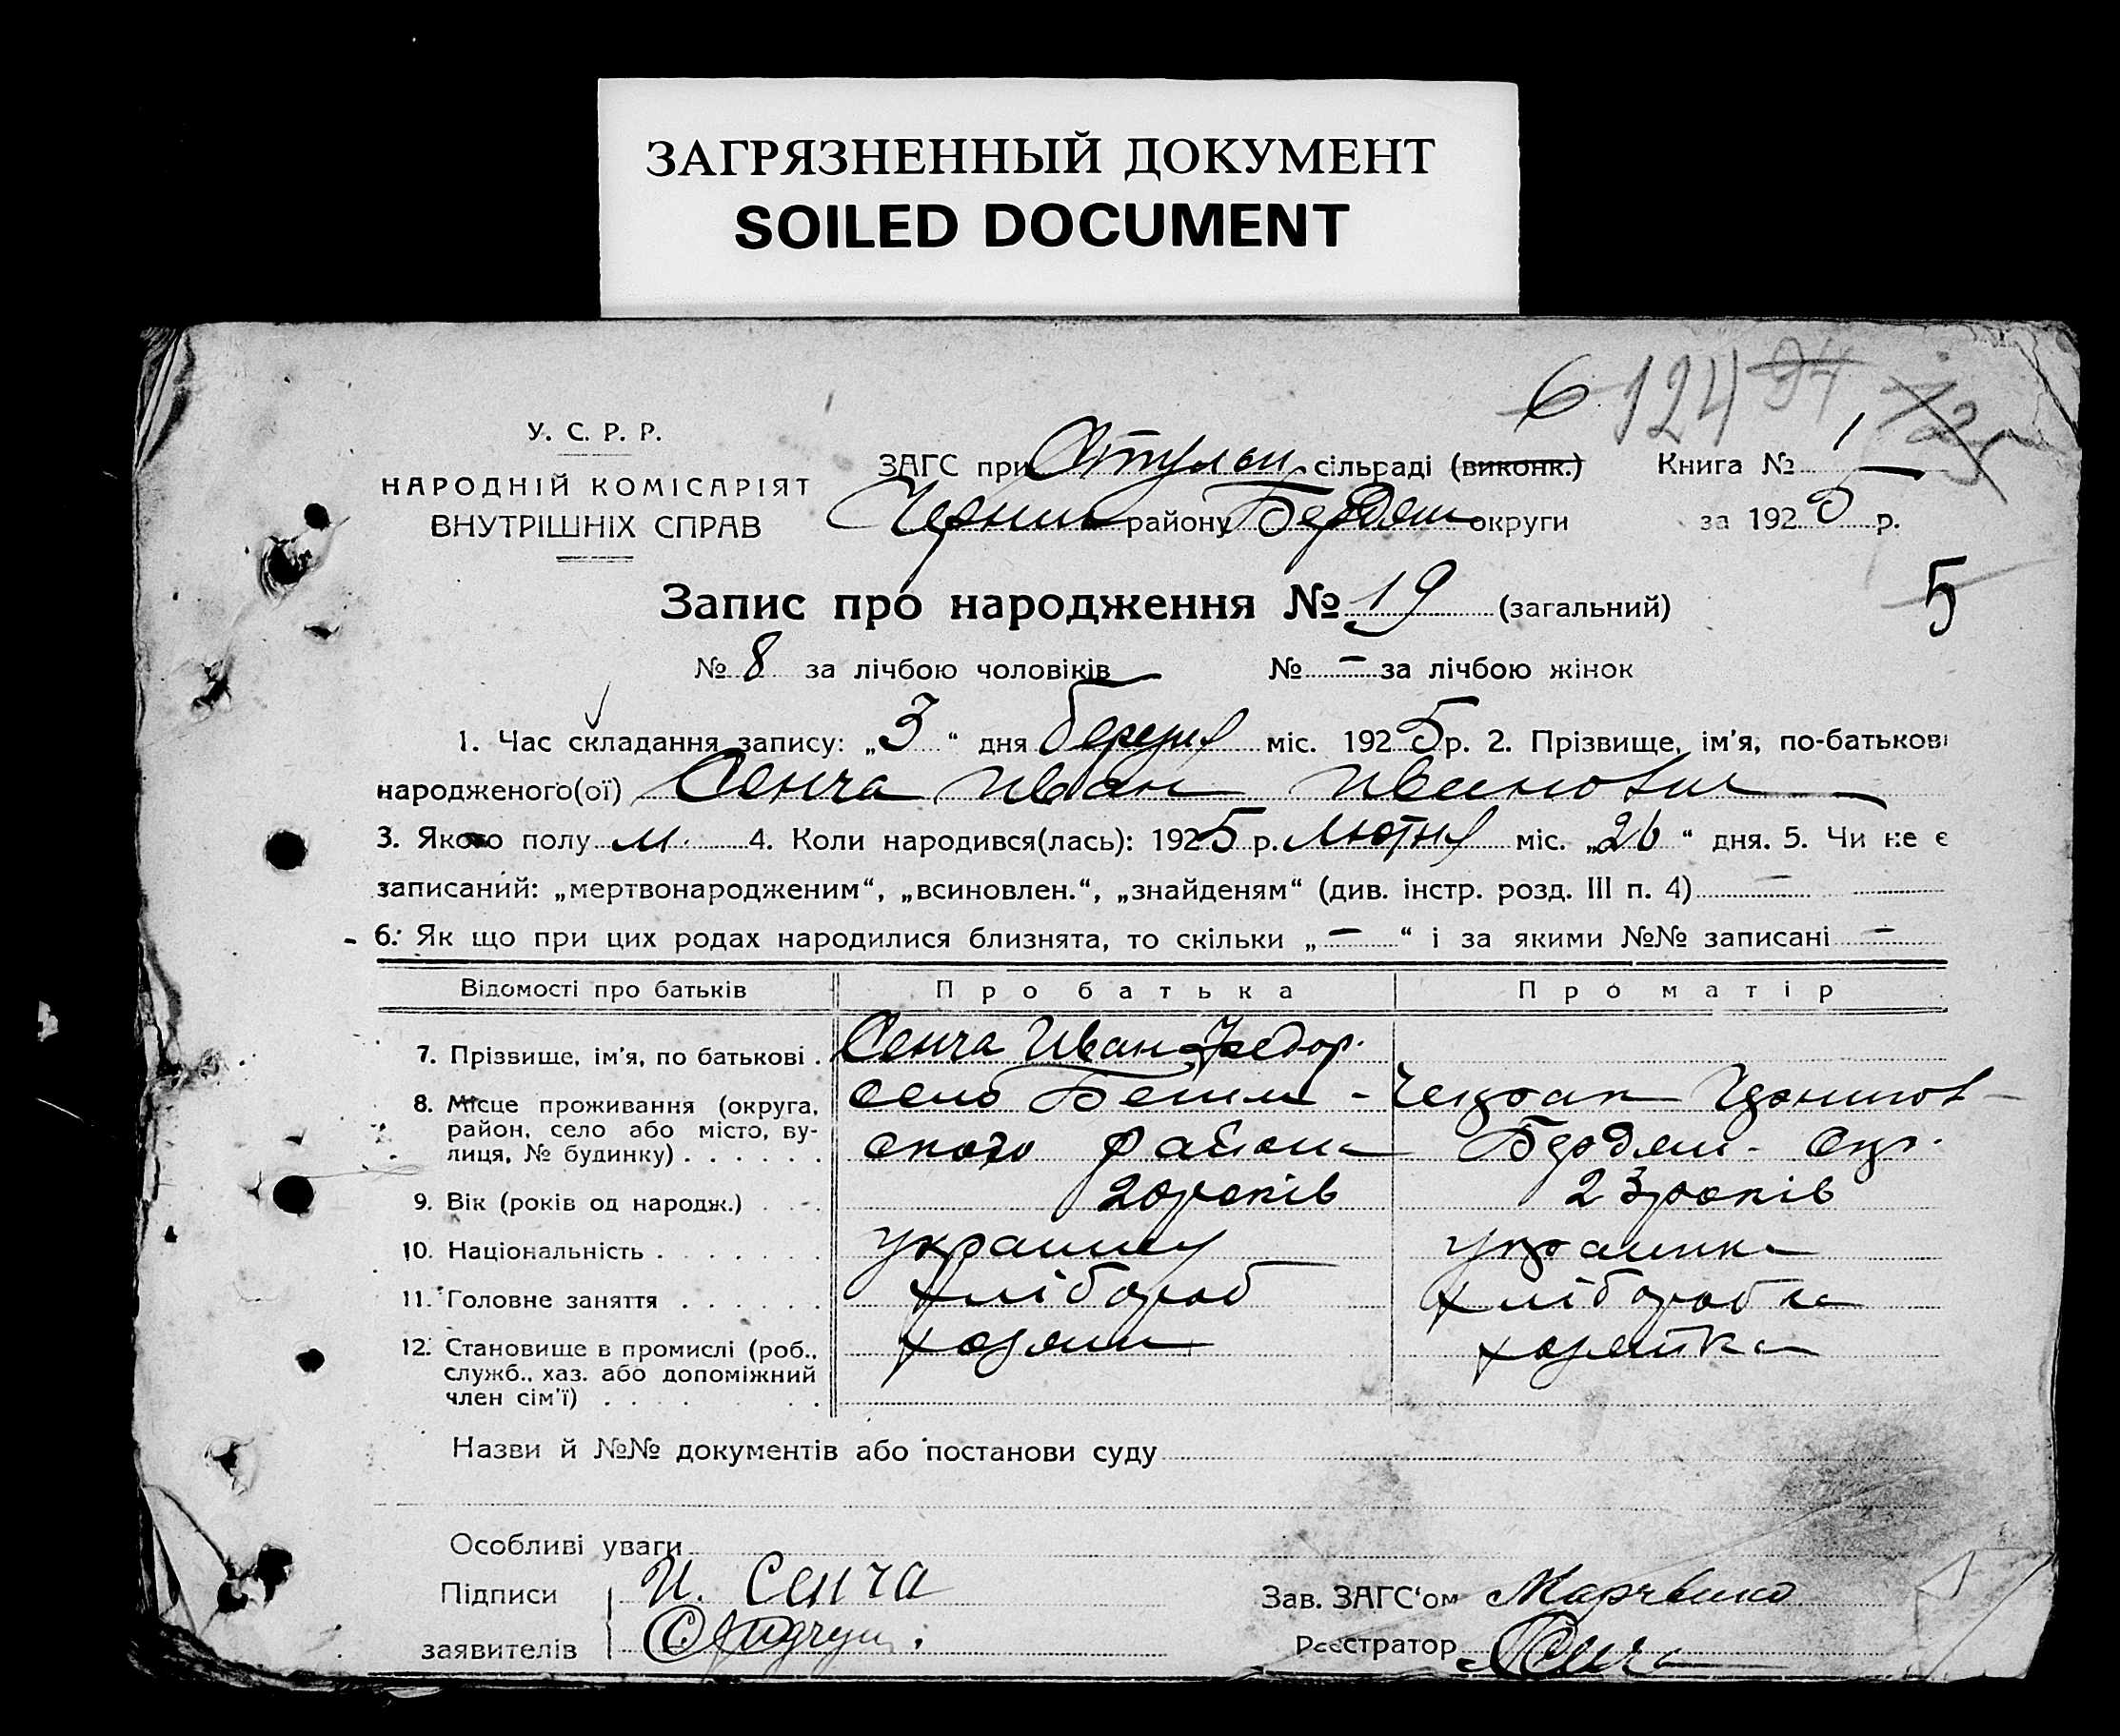 ЗАГРЯЗНЕННЫЙ ДОКУМЕНТ
SOILED DOCUMENT
6 124 94
У. С. Р. Р.
НАРОДНІЙ КОМІСАРІЯТ
ВНУТРІШНІХ СПРАВ
ЗАГС при сільраді (виконк.) Книга № 1
району Бердян округи за 1925 р.
5
Запис про народження № 19 (загальний)
№ 8 за лічбою чоловіків № — за лічбою жінок
1. Час складання запису: „3“ дня березня міс. 1925 р. 2. Прізвище, ім'я, по-батькові
народженого(ої) Сенча Иван Иванович
3. Якого полу м. 4. Коли народився(лась): 1925 р. Лютня міс. „26“ дня. 5. Чи не є
записаний: „мертвонародженим“, „всиновлен.“, „знайденям“ (див. інстр. розд. III п. 4) —
6. Як що при цих родах народилися близнята, то скільки „—“ і за якими №№ записані —
Відомості про батьків Про батька Про матір
7. Прізвище, ім'я, по батькові . Сенча Иван Федор.
8. Місце проживання (округа, село
район, село або місто, ву-
лиця, № будинку) . . . . . . ского района Бердян. окр.
9. Вік (років од народж.) . . . 20 років 23 років
10. Національність . . . . . . . українец українка
11. Головне заняття . . . . . . хлібороб хліборобка
12. Становище в промислі (роб., хозяин хозяйка
служб., хаз. або допоміжний
член сім'ї) . . . . . . .
Назви й №№ документів або постанови суду
Особливі уваги
Підписи И. Сенча Зав. ЗАГС'ом Марченко
заявителів Реєстратор